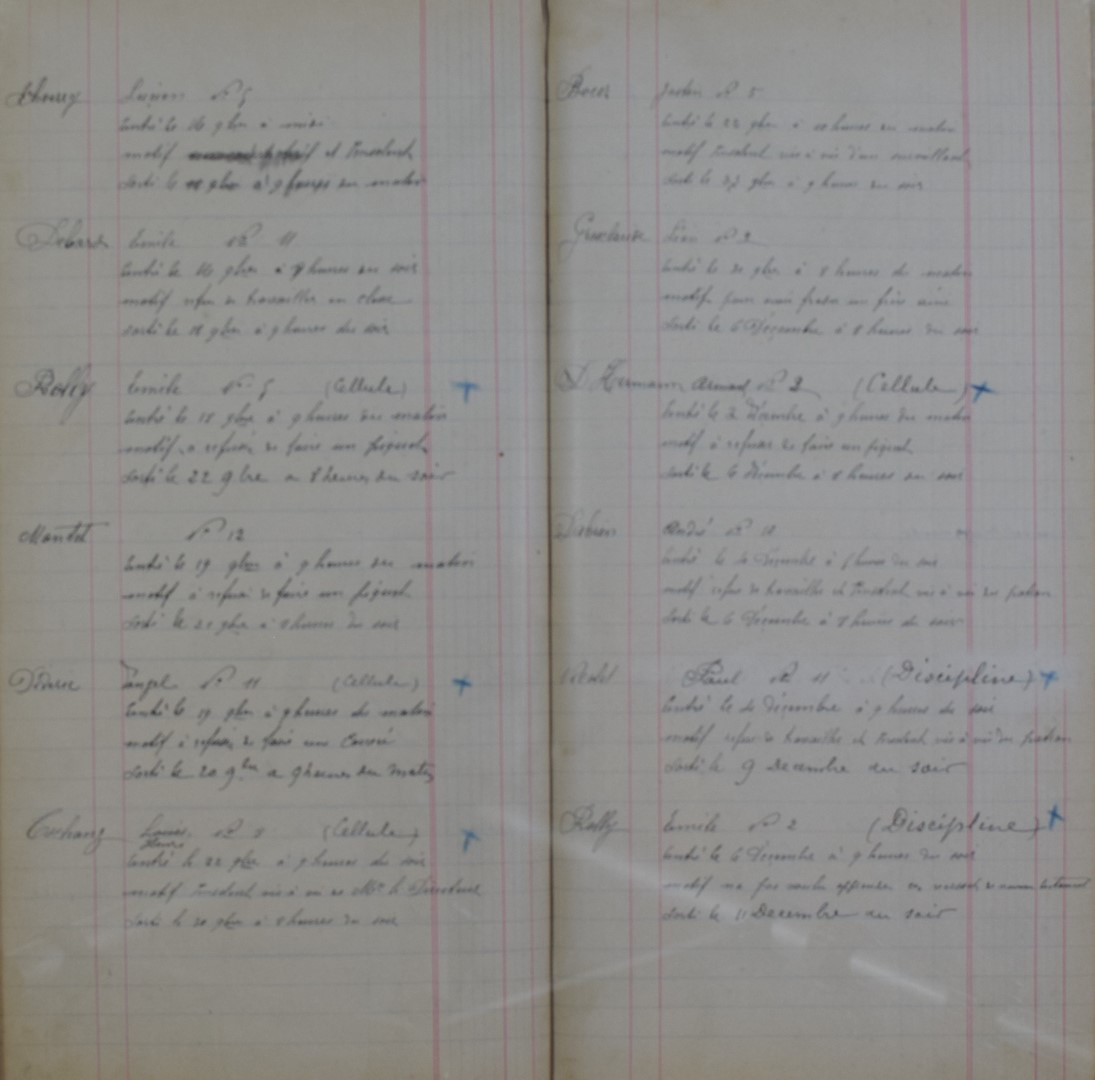 Lucien Nº 5
Entré le 16 9bre à midi
motif et Insolent
Sorti le 18 9bre à 9 heures du matin
Emile Nº 11
Entré le 16 9bre à heures du soir
motif refus de travailler en classe
Sorti le 18 9bre à 9 heures du soir
Rolly Emile Nº 5 (Cellule)
Entré le 18 9bre à 9 heures du matin
motif a refusé de faire un piquet
Sorti le 22 9bre a 8 heures du soir
Mantet Nº 12
Entré le 19 9bre à 9 heures du matin
motif à refusé de faire un piquet
Sorti le 20 9bre à 8 heures du soir
Angel Nº 11 (Cellule)
Entré le 19 9bre à 9 heures du matin
motif à refusé de faire une Corvée
Sorti le 20 9bre a 9 heures du matin
Louis Nº (Cellule)
Entré le 22 9bre à 9 heures du soir
motif Insolent vis à vis de Mr le Directeur
Sorti le 30 9bre à 8 heures du soir
Nº 5
Entré le 22 9bre à 10 heures du matin
motif Insolent vis à vis d'un surveillant
Sorti le 9bre à 9 heures du soir
Léon Nº 2
Entré le 30 9bre à 8 heures du matin
motif pour avoir
Sorti le 6 Décembre à 8 heures du soir
D'Hermann Armand Nº 2 (Cellule)
Entré le 2 Décembre à 9 heures du matin
motif à refusé de faire un piquet
Sorti le 6 Décembre à 8 heures du soir
André Nº
Entré le 4 Décembre à heures du soir
motif refus de travailler et Insolent vis à vis du patron
Sorti le 6 Décembre à 8 heures du soir
Paul Nº 11 (Discipline)
Entré le 4 décembre à 9 heures du soir
motif refus de travailler et Insolent vis à vis du patron
Sorti le 9 Decembre au soir
Rolly Emile Nº 2 (Discipline)
Entré le 6 Décembre à 9 heures du soir
motif na pas voulu
Sorti le 11 Decembre au soir